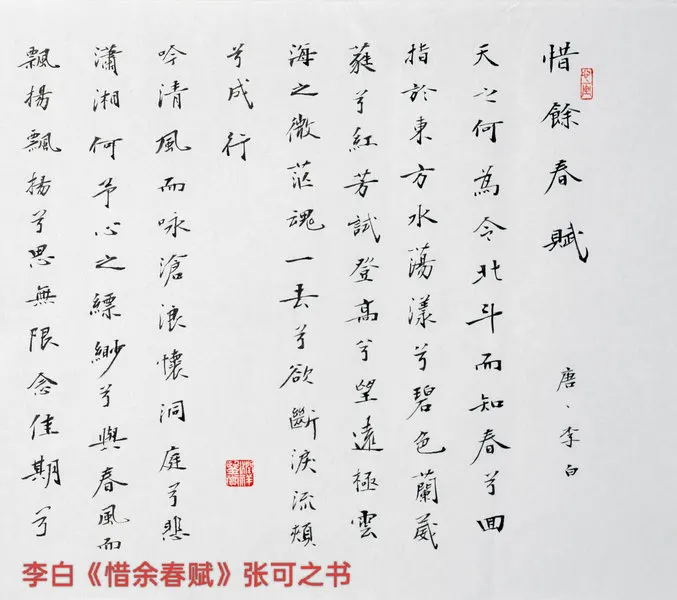 惜餘春賦
唐、李白
天之何為令北斗而知春兮回
指於東方水蕩漾兮碧色蘭葳
蕤兮紅芳試登高兮望遠極雲
海之微茫魂一去兮欲斷淚流頰
兮成行
吟清風而咏滄浪懷洞庭兮悲
瀟湘何予心之縹緲兮與春風而
飄揚飄揚兮思無限念佳期兮
李白《惜余春赋》张可之书